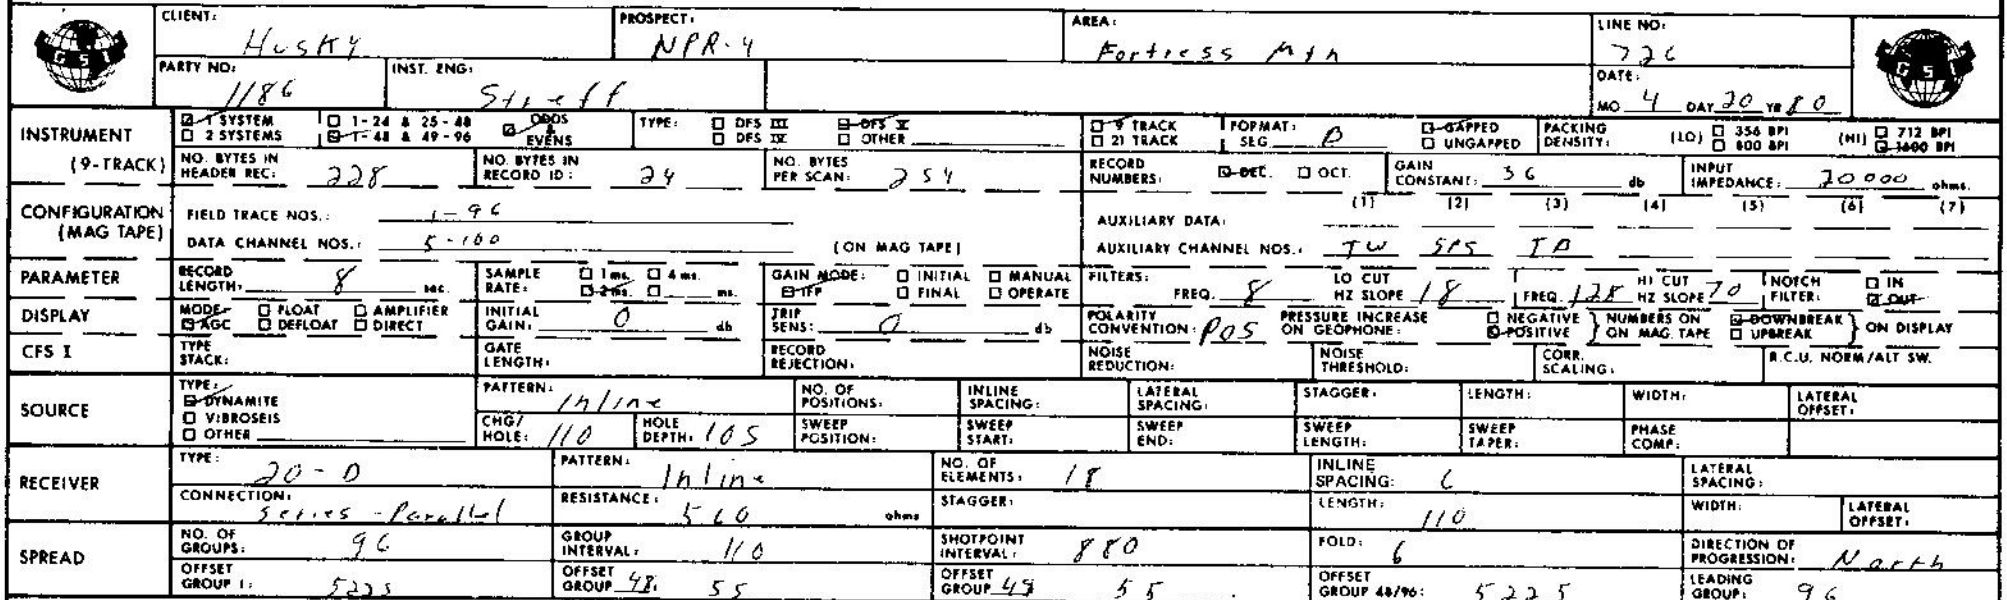 CLIENT: Husky PROSPECT: NPR-4 AREA: Fortress Mtn LINE NO: 726
GSI GSI
PARTY NO: 1186 INST. ENG: Streff DATE: MO 4 DAY 20 YR 80
INSTRUMENT (9-TRACK)
☑ 1 SYSTEM ☐ 2 SYSTEMS ☐ 1-24 & 25-48 ☑ 1-48 & 49-96 ☑ ODDS & EVENS TYPE: ☐ DFS III ☐ DFS IV ☑ DFS V ☐ OTHER ☑ 9 TRACK ☐ 21 TRACK FORMAT: SEG B ☑ GAPPED ☐ UNGAPPED PACKING DENSITY: (LO) ☐ 356 BPI ☐ 800 BPI (HI) ☐ 712 BPI ☑ 1600 BPI
NO. BYTES IN HEADER REC: 228 NO. BYTES IN RECORD ID: 24 NO. BYTES PER SCAN: 254 RECORD NUMBERS: ☑ DEC. ☐ OCT. GAIN CONSTANT: 36 db INPUT IMPEDANCE: 20000 ohms.
CONFIGURATION (MAG TAPE)
FIELD TRACE NOS.: 1-96 AUXILIARY DATA: (1) (2) (3) (4) (5) (6) (7)
DATA CHANNEL NOS.: 5-100 (ON MAG TAPE) AUXILIARY CHANNEL NOS.: TW SPS TB
PARAMETER RECORD LENGTH: 8 sec. SAMPLE RATE: ☐ 1 ms. ☐ 4 ms. ☑ 2 ms. ☐ ms. GAIN MODE: ☑ IFP ☐ INITIAL ☐ FINAL ☐ MANUAL ☐ OPERATE FILTERS: FREQ. 8 LO CUT HZ SLOPE 18 FREQ. 128 HI CUT HZ SLOPE 70 NOTCH FILTER: ☐ IN ☑ OUT
DISPLAY MODE: ☑ AGC ☐ FLOAT ☐ DEFLOAT ☐ AMPLIFIER ☐ DIRECT INITIAL GAIN: 0 db TRIP SENS: 0 db POLARITY CONVENTION: POS PRESSURE INCREASE ON GEOPHONE: ☐ NEGATIVE ☑ POSITIVE } NUMBERS ON ON MAG TAPE ☑ DOWNBREAK ☐ UPBREAK } ON DISPLAY
CFS I TYPE STACK: GATE LENGTH: RECORD REJECTION: NOISE REDUCTION: NOISE THRESHOLD: CORR. SCALING: R.C.U. NORM/ALT SW.
SOURCE TYPE: ☑ DYNAMITE ☐ VIBROSEIS ☐ OTHER PATTERN: Inline NO. OF POSITIONS: INLINE SPACING: LATERAL SPACING: STAGGER: LENGTH: WIDTH: LATERAL OFFSET:
CHG/HOLE: 110 HOLE DEPTH: 105 SWEEP POSITION: SWEEP START: SWEEP END: SWEEP LENGTH: SWEEP TAPER: PHASE COMP:
RECEIVER TYPE: 20-D PATTERN: Inline NO. OF ELEMENTS: 18 INLINE SPACING: 6 LATERAL SPACING:
CONNECTION: series-Parallel RESISTANCE: 560 ohms STAGGER: LENGTH: 110 WIDTH: LATERAL OFFSET:
SPREAD NO. OF GROUPS: 96 GROUP INTERVAL: 110 SHOTPOINT INTERVAL: 880 FOLD: 6 DIRECTION OF PROGRESSION: North
OFFSET GROUP 1: 5225 OFFSET GROUP 48: 55 OFFSET GROUP 49 55 OFFSET GROUP 48/96: 5225 LEADING GROUP: 96